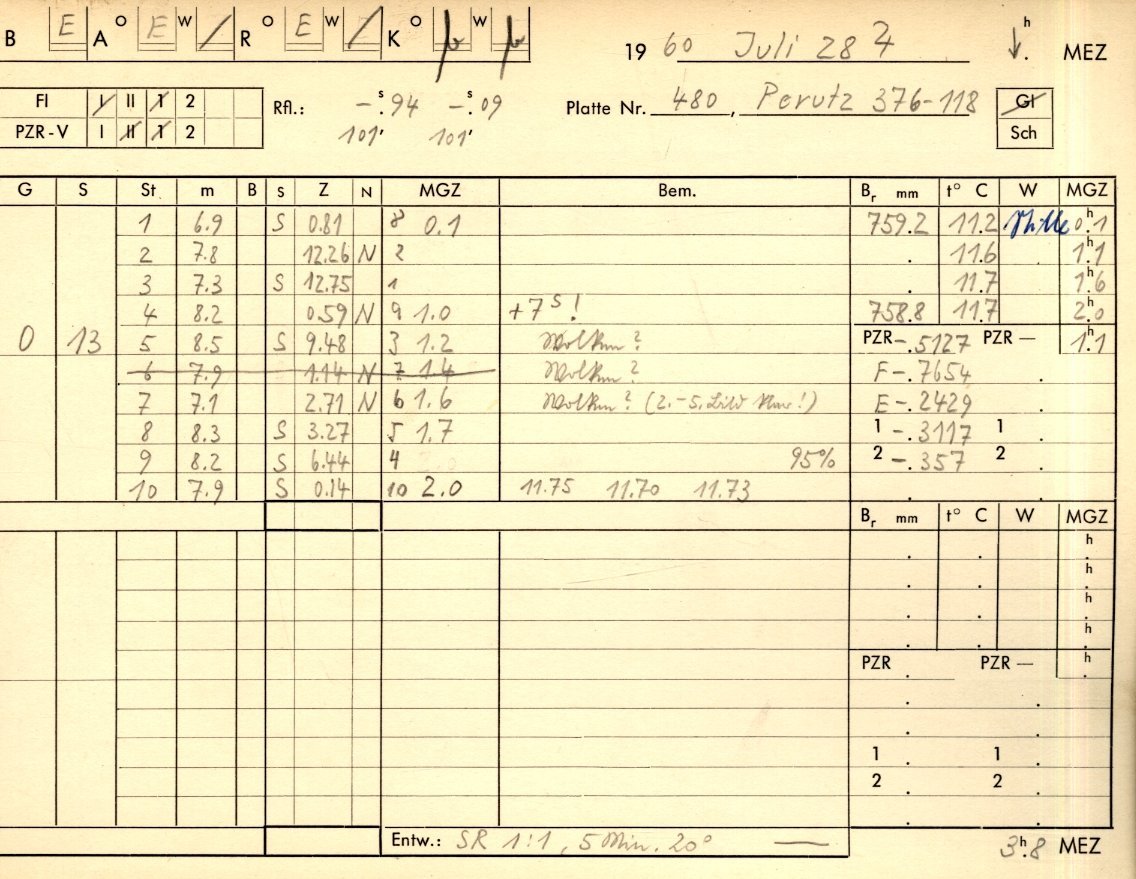 B E A O E W / R O E W / K O W
19 60 Juli 28 h MEZ
FI I II 1 2
PZR-V I II 1 2
Rfl.: -.s94 -.s09
101' 101'
Platte Nr. 480, Perutz 376-118
Gl
Sch
G S St m B S Z N MGZ Bem. Br mm t° C W MGZ
1 6.9 S 0.81 8 0.1 759.2 11.2 Stille 0h.1
2 7.8 12.26 N 2 . 11.6 . 1h.1
3 7.3 S 12.75 1 11.7 1h.6
4 8.2 0.59 N 9 1.0 +7s! 758.8 11.7 2h.0
0 13 5 8.5 S 9.48 3 1.2 Wolken? PZR-.5127 PZR — 1h.1
6 7.9 1.14 N 7 1.4 Wolken? F-.7654 .
7 7.1 2.71 N 6 1.6 Wolken? (2.-5. Bild !) E-.2429 .
8 8.3 S 3.27 5 1.7 1 -.3117 1 .
9 8.2 S 6.44 4 95% 2 -.357 2 .
10 7.9 S 0.14 10 2.0 11.75 11.70 11.73
Br mm t° C W MGZ
h
h
h
h
PZR . PZR — h
1 . 1 .
2 . 2 .
Entw.: SR 1:1, 5 Min. 20° — 3h.8 MEZ